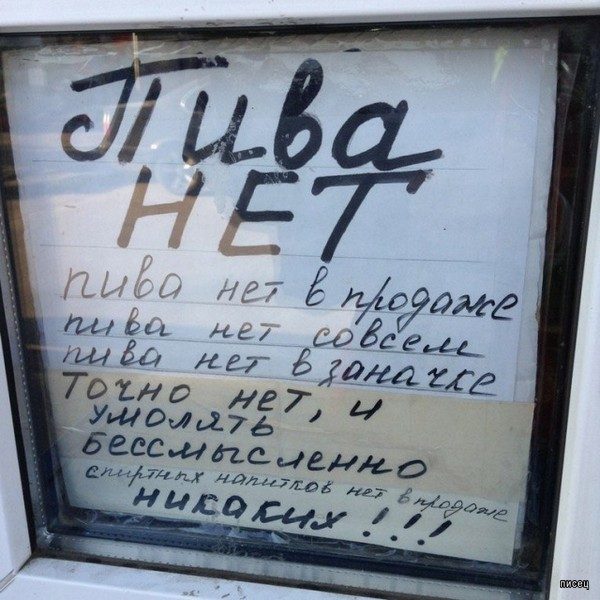 Пива
НЕТ
пива нет в продаже
пива нет совсем
пива нет в заначке
Точно нет, и
умолять
бессмысленно
спиртных напитков нет в продаже
никаких!!!
писец